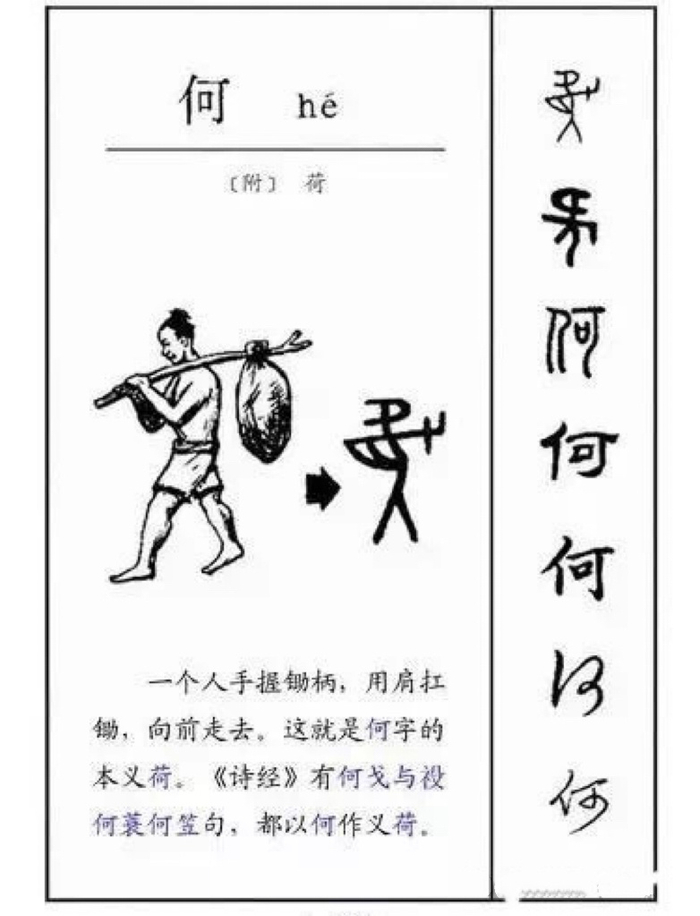 何 hé
〔附〕 荷
一个人手握锄柄，用肩扛
锄，向前走去。这就是何字的
本义荷。《诗经》有何戈与祋
何蓑何笠句，都以何作义荷。
何
何
何
何
何